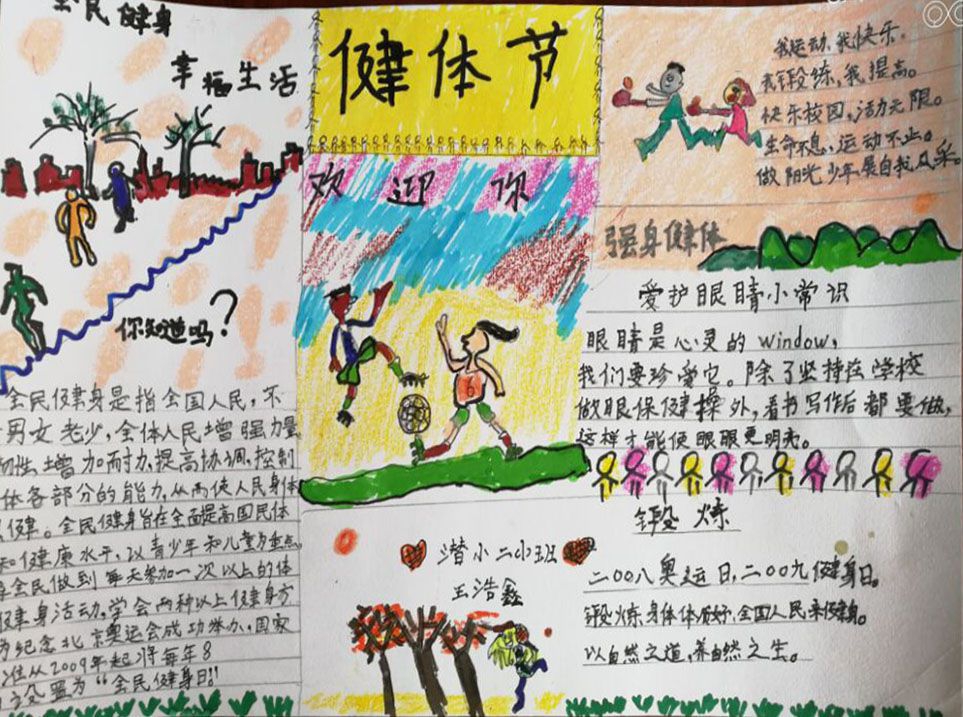 全民健身
幸福生活
你知道吗？
全民健身是指全国人民，不
男女老少，全体人民增强力量
韧性增加耐力，提高协调，控制
体各部分的能力，从而使人民身体
健。全民健身旨在全面提高国民体
和健康水平，以青少年和儿童为重点
全民做到每天参加一次以上的体
健身活动，学会两种以上健身方
为纪念北京奥运会成功举办，国家
准从2009年起将每年8
设置为“全民健身日！”
健体节
欢迎你
6
潜小二小班
王浩鑫
我运动，我快乐。
我锻练，我提高。
快乐校园，活力无限。
生命不息，运动不止。
做阳光少年，展自我风采。
强身健体
爱护眼睛小常识
眼睛是心灵的window，
我们要珍爱它。除了坚持在学校
做眼保健操外，看书写作后都要做，
这样才能使眼眼更明亮。
锻炼
二00八奥运日，二00九健身日。
锻炼身体体质好，全国人民来健身。
以自然之道，养自然之生。